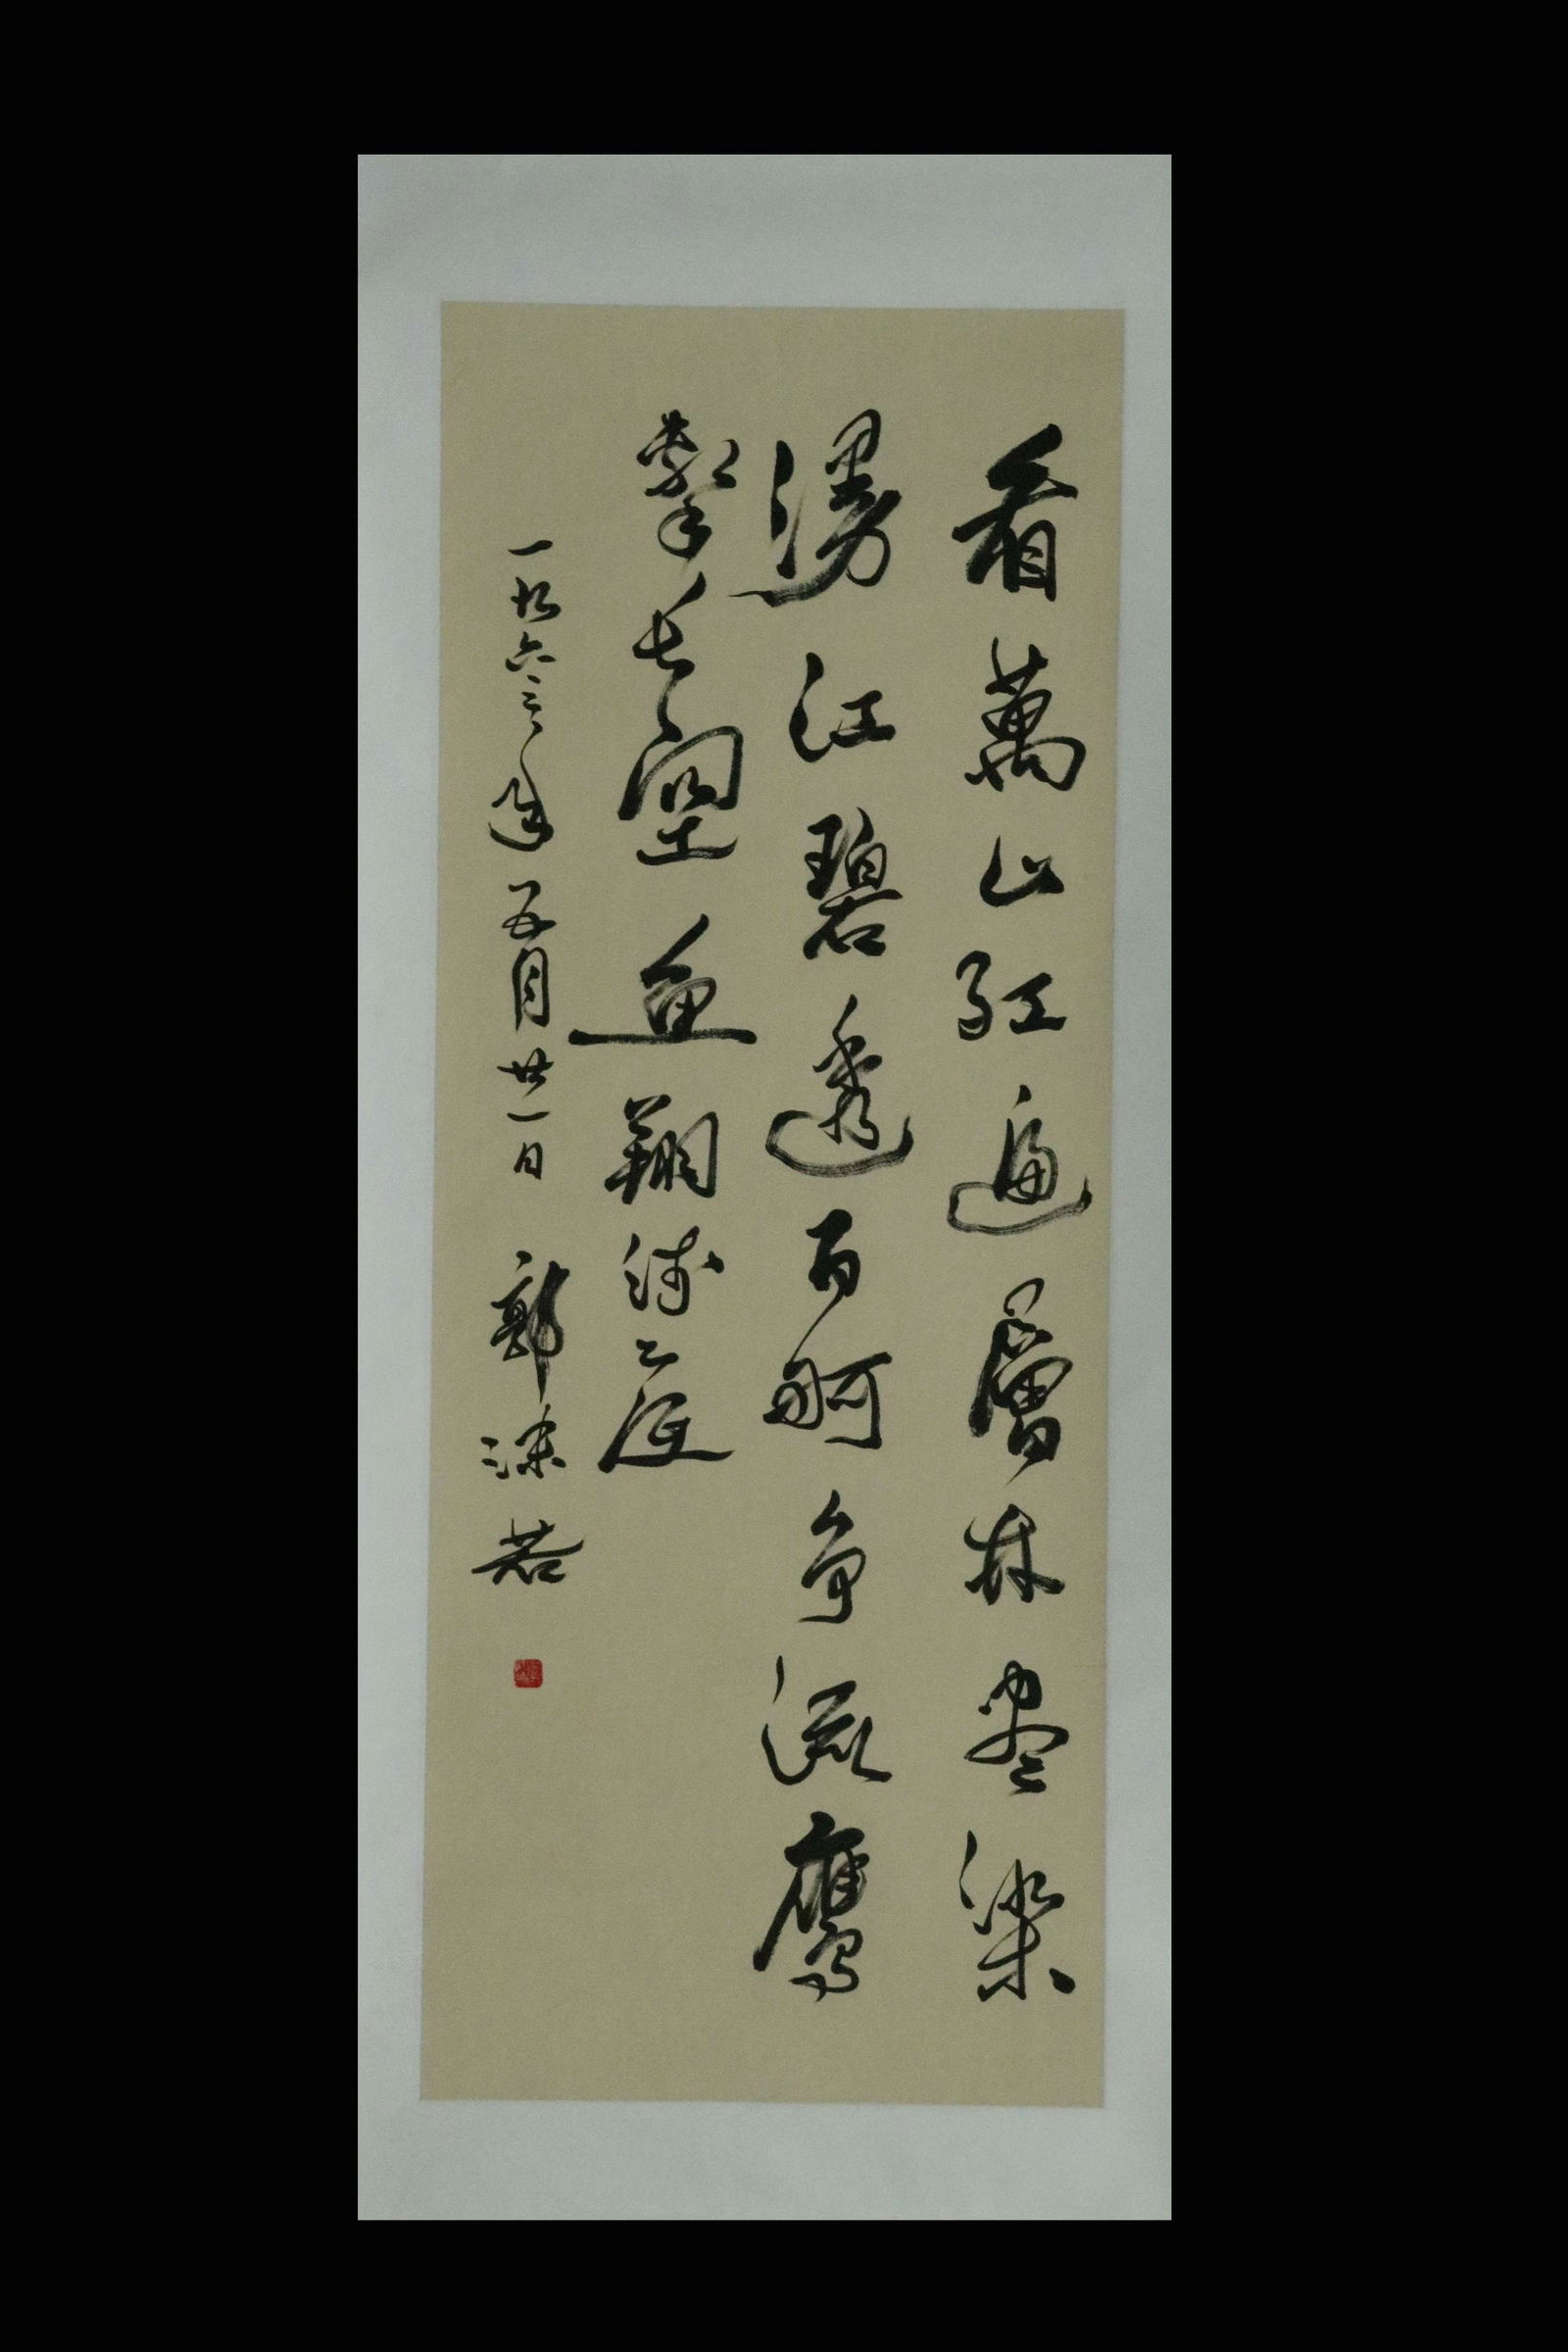 看萬山紅遍層林尽染
漫江碧透百舸争流鷹
擊长空魚翔浅底
一九六三年五月廿一日 郭沫若